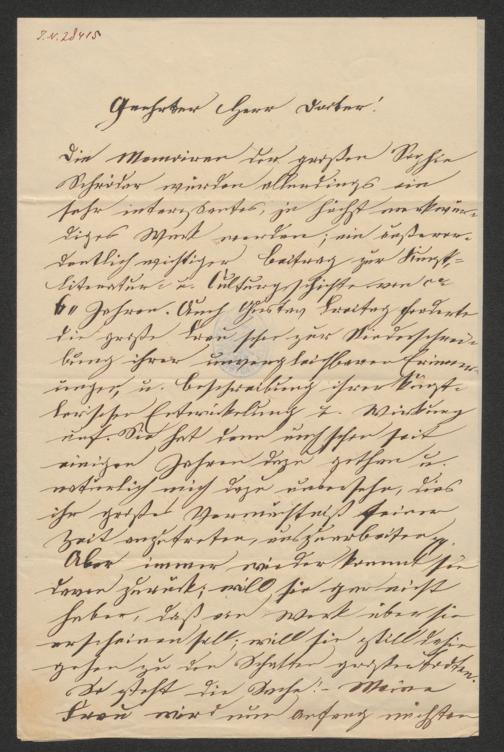 I.N. 28415
Geehrter Herr Doctor!
Die Memoiren der großen Sophie
Schröder würden allerdings ein
sehr interessantes, ja höchst merkwür-
diges Werk werden; ein außeror-
dentlich wichtiger Beitrag zur Kunst-
literatur- u. Culturgeschichte von ca
60 Jahren. Auch Gustav Freitag forderte
die große Frau schon zur Niederschrei-
bung ihrer unvergleichbaren Erinner-
ungen, u. Beschreibung ihrer künst-
lerischen Entwickelung u. Wirkung
auf. Sie hat denn auch schon seit
einigen Jahren dazu gethan u.
natürlich mich dazu ausersehen, dies
ihr großes Vermächtniß seiner
Zeit anzutreten, auszuarbeiten
Aber immer wieder kommt sie
davon zurück; will sie gar nicht
haben, daß ein Werk über sie
erscheinen soll; will sie still dahin
gehen zu den Schatten großer Todten.
So steht die Sache! – Meine
Frau wird nun Anfang nächsten